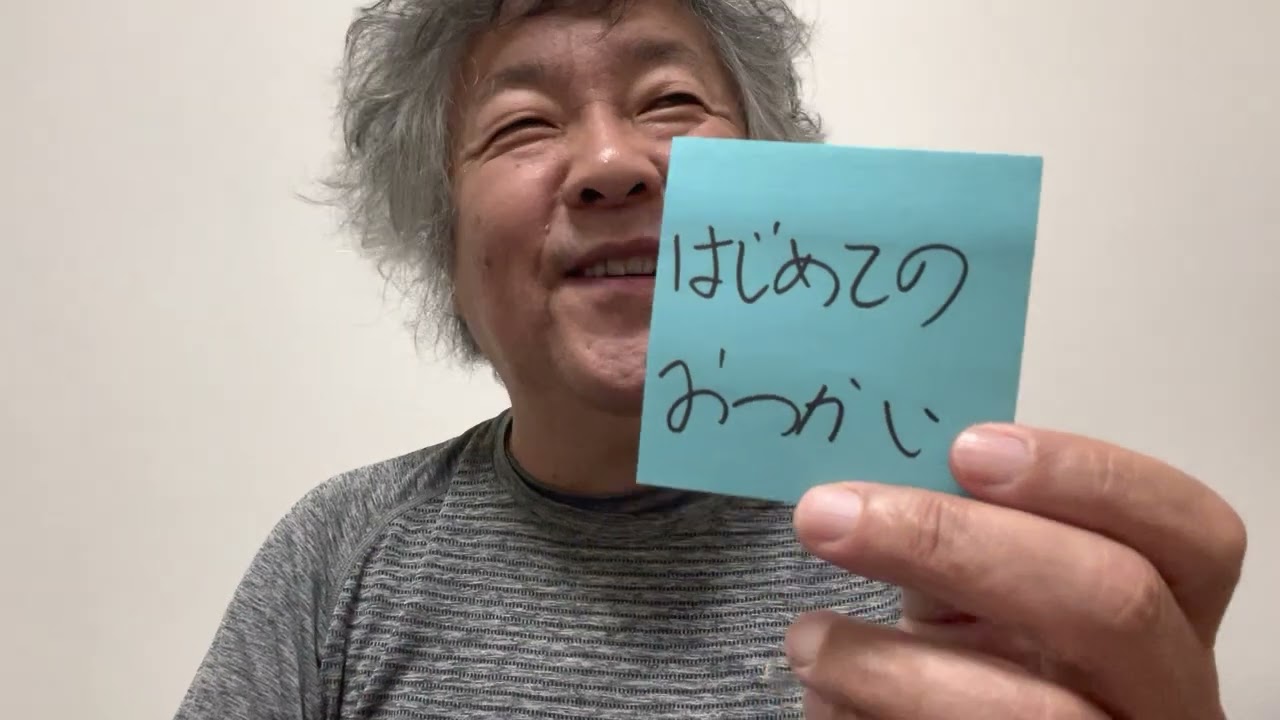 はじめての
おつかい